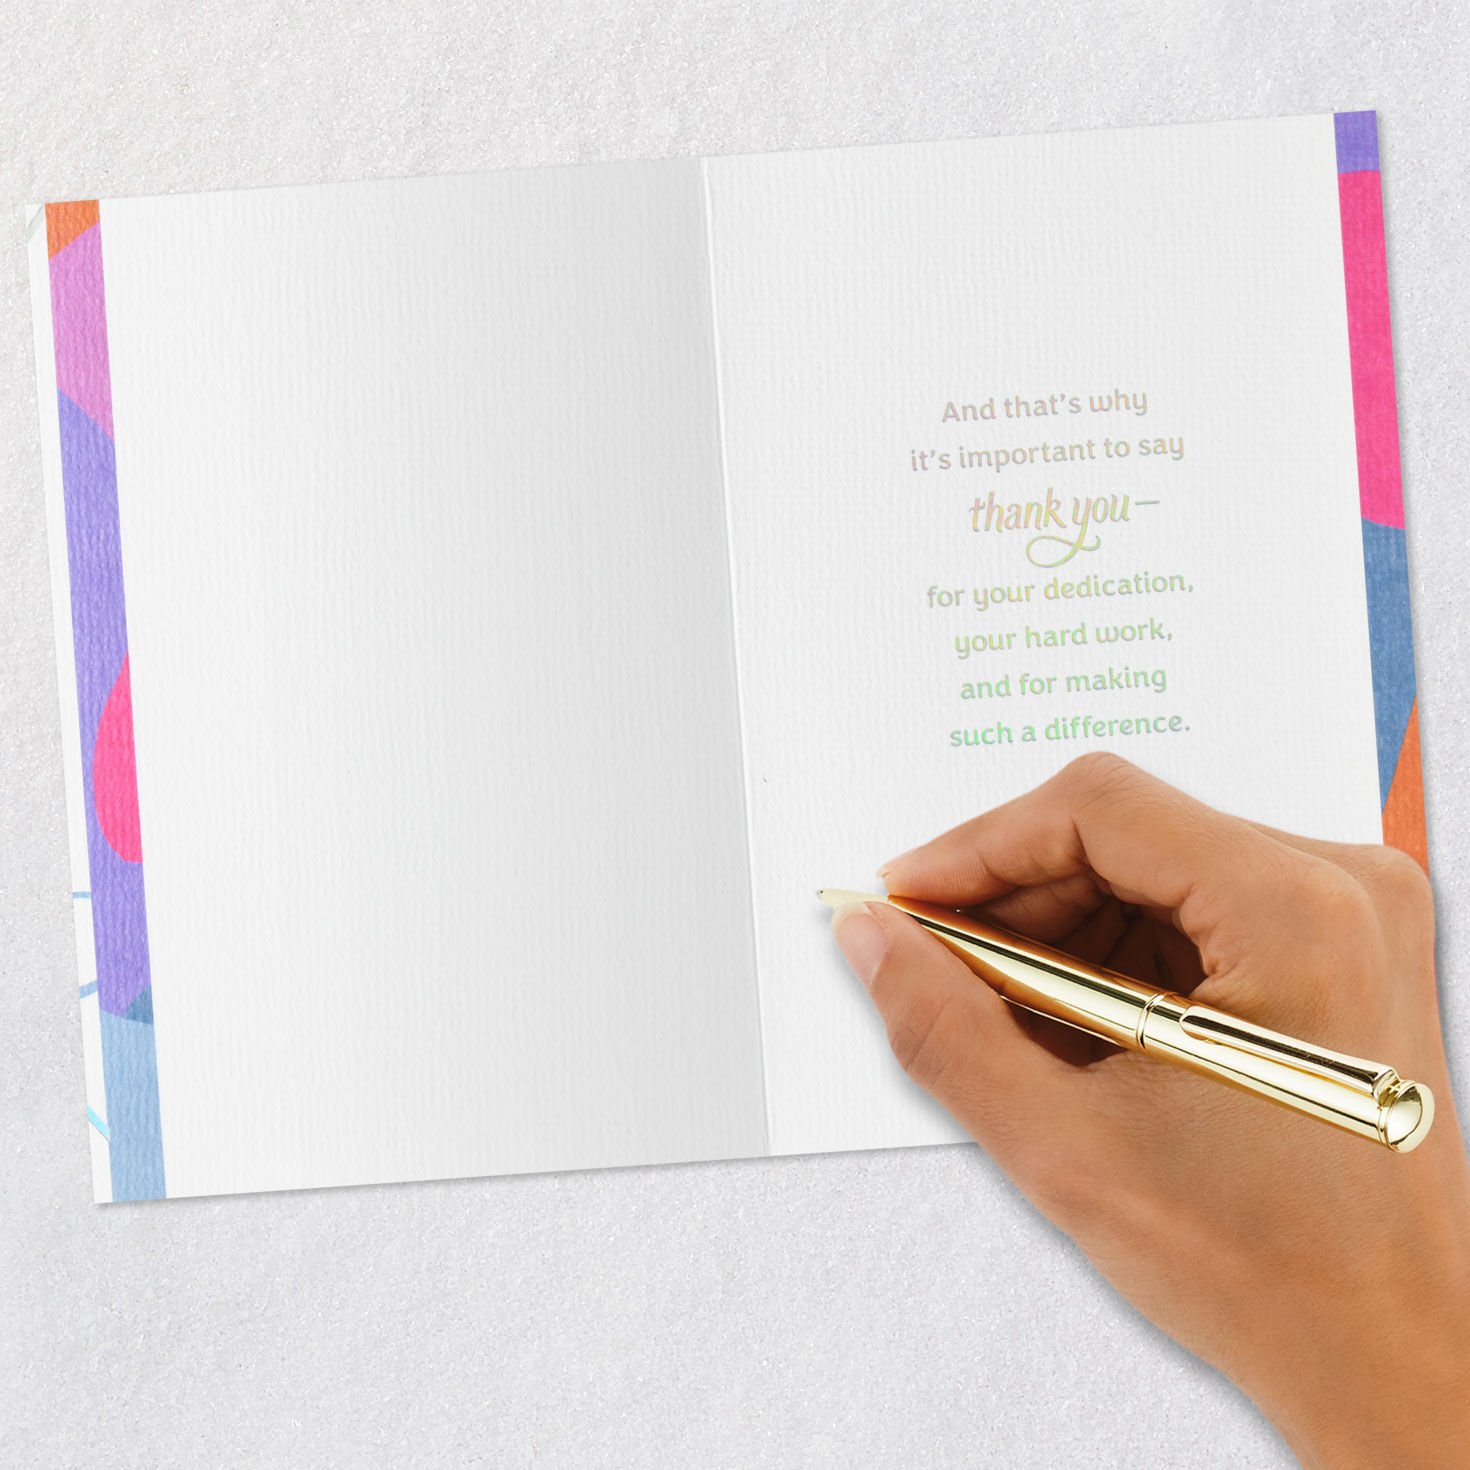 And that's why
it's important to say
thank you—
for your dedication,
your hard work,
and for making
such a difference.